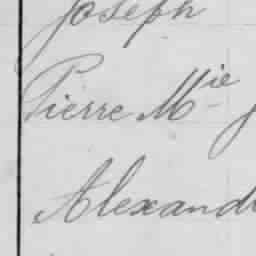 Joseph
Pierre Mie
Alexand